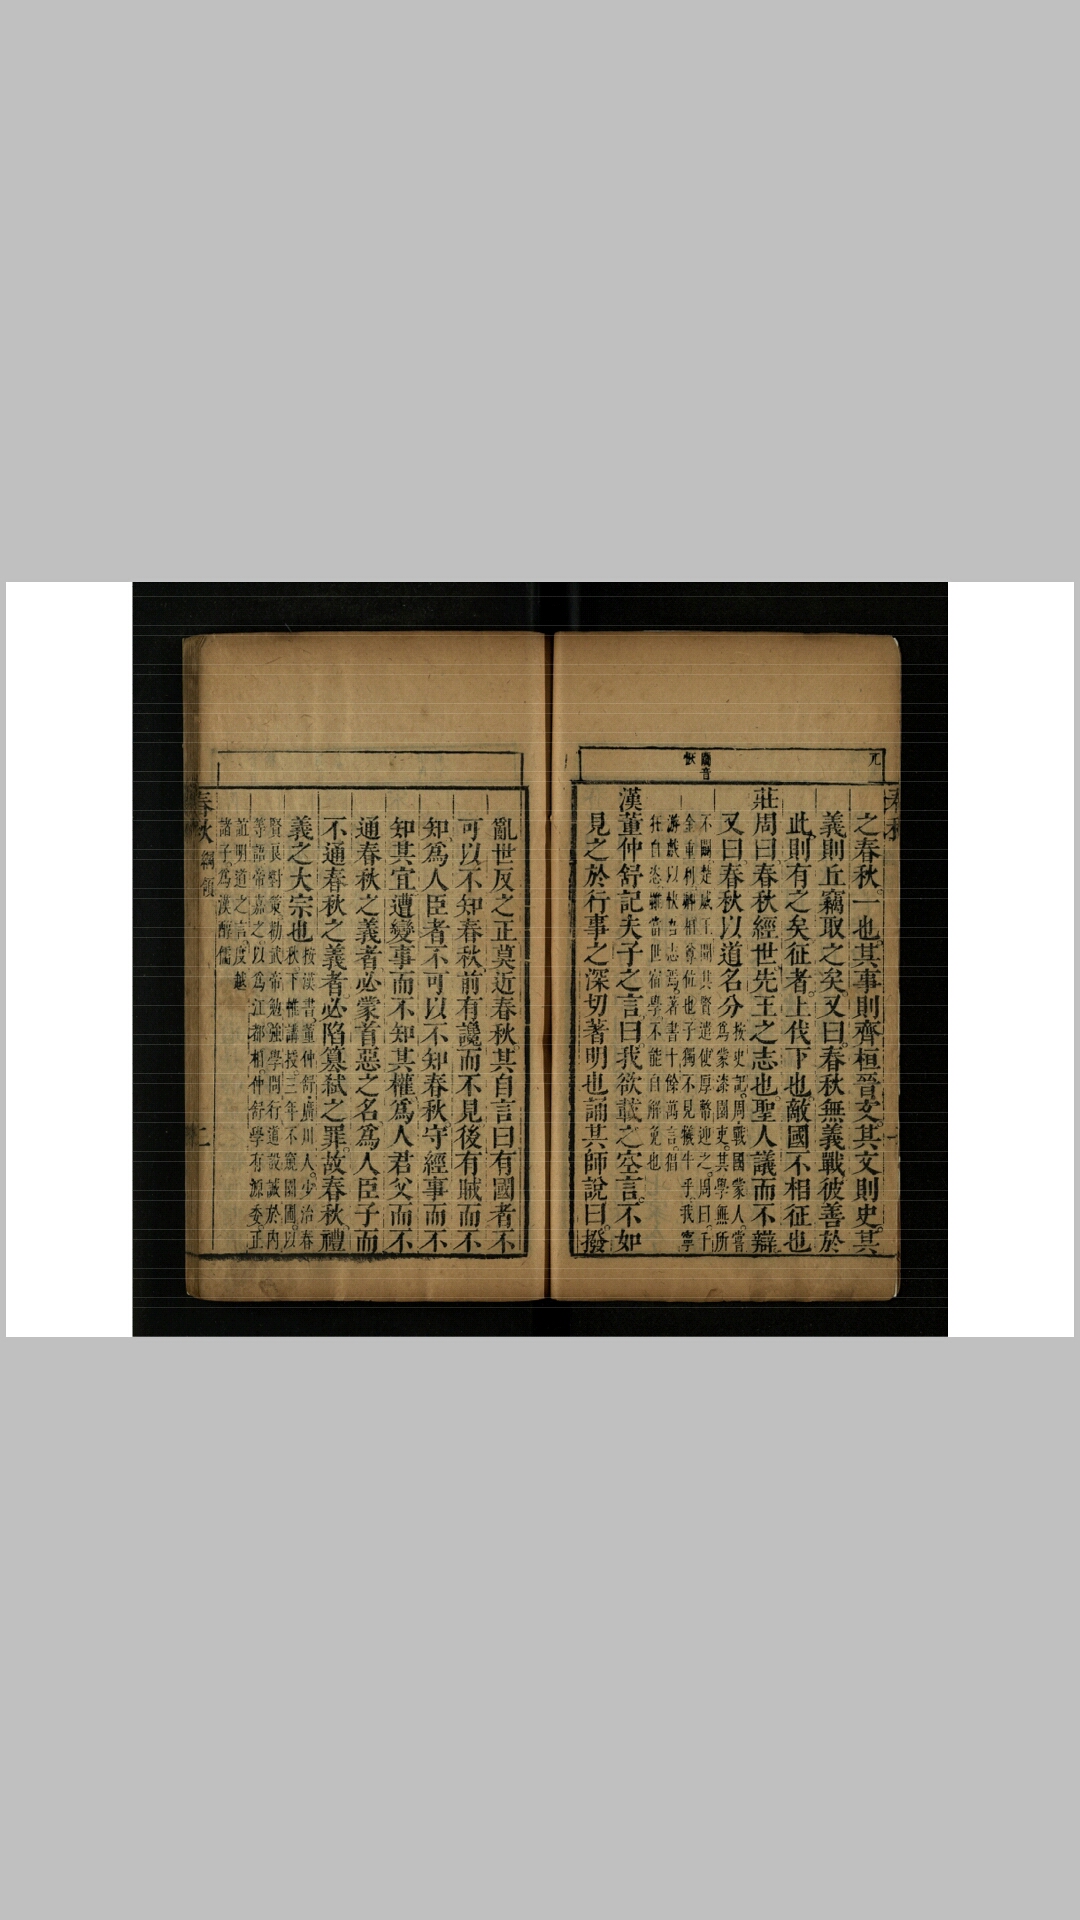 之春秋一也其事則齊桓晉文其文則史其
義則丘竊取之矣又曰春秋無義戰彼善於
此則有之矣征者上伐下也敵國不相征也
莊周曰春秋經世先王之志也聖人議而不辯
又曰春秋以道名分
按史記周戰國蒙人嘗
爲蒙漆園吏其學無所
不闚楚威王聞其賢遣使厚幣迎之周曰千
金重利卿相尊位也子獨不見犧牛乎我寧
游戲以快吾志焉著書十餘萬言猖
狂自恣雖當世宿學不能自解免也
漢董仲舒記夫子之言曰我欲載之空言不如
見之於行事之深切著明也誦其師說曰撥
亂世反之正莫近春秋其自言曰有國者不
可以不知春秋前有讒而不見後有賊而不
知爲人臣者不可以不知春秋守經事而不
知其宜遭變事而不知其權爲人君父而不
通春秋之義者必蒙首惡之名爲人臣子而
不通春秋之義者必陷篡弒之罪故春秋禮
義之大宗也
按漢書董仲舒廣川人少治春
秋下帷講授三年不窺園圃以
賢良對策勸武帝勉強學問行道設誠於內
等語帝嘉之以爲江都相仲舒學有源委正
誼明道之言度越
諸子爲漢醇儒
春秋
綱領
二